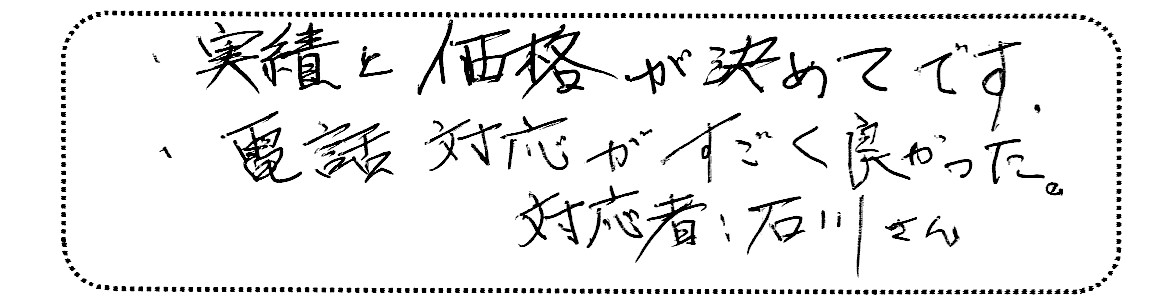 ・実績と価格が決めてです.
・電話対応がすごく良かった。
対応者:石川さん